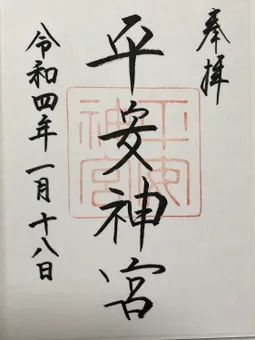 奉拝
平安神宮
令和四年一月十八日
平安
神宮